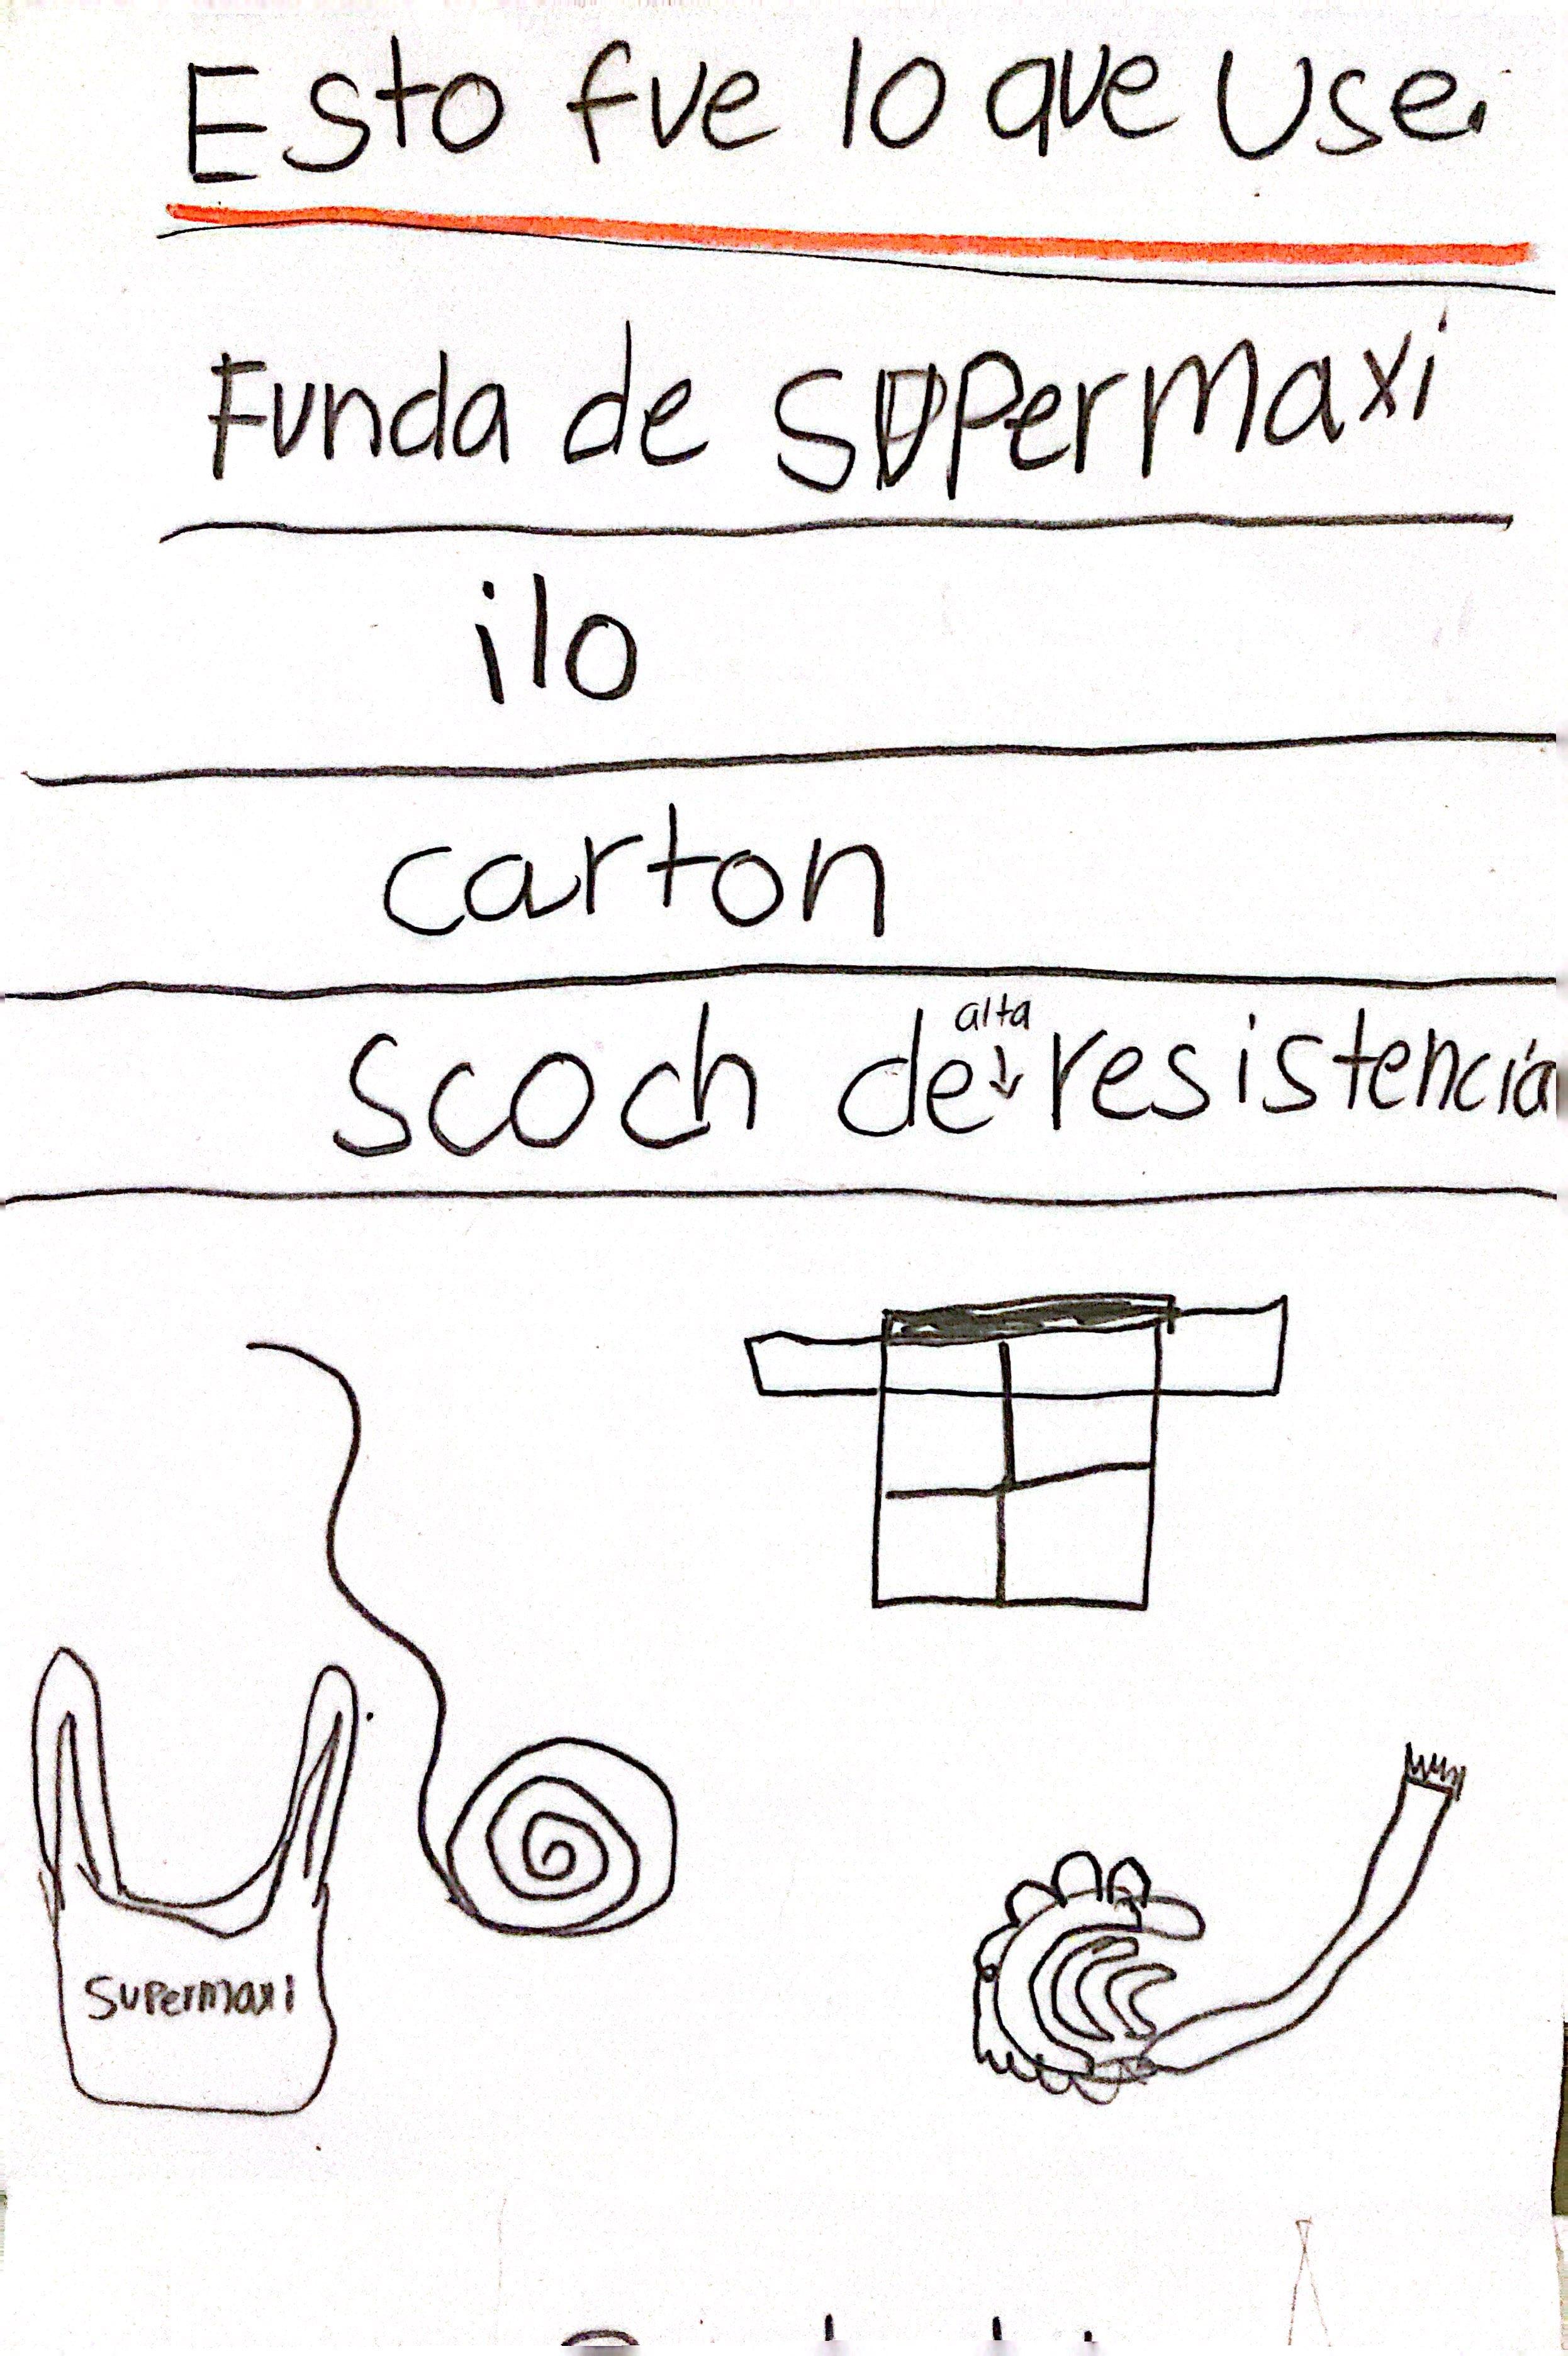 Esto fue lo que Use.
Funda de Supermaxi
ilo
carton
alta
Scoch de resistencia
Supermaxi